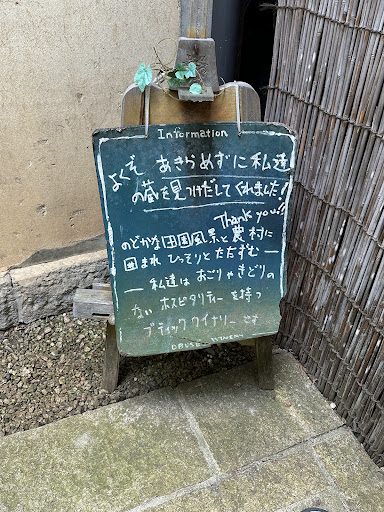 Information
よくぞ あきらめずに私達
の蔵を見つけだしてくれました!
Thank you!!
のどかな田園風景と農村に
囲まれ ひっそりとたたずむ―
― 私達は おごりやきどりの
ない ホスピタリティーを持つ
ブティックワイナリーです